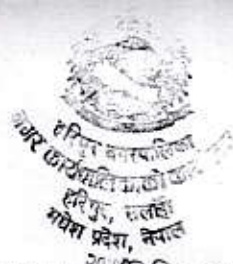 हरिपुर नगरपालिका
नगर कार्यपालिकाको कार्यालय
हरिपुर, सर्लाही
मधेश प्रदेश, नेपाल